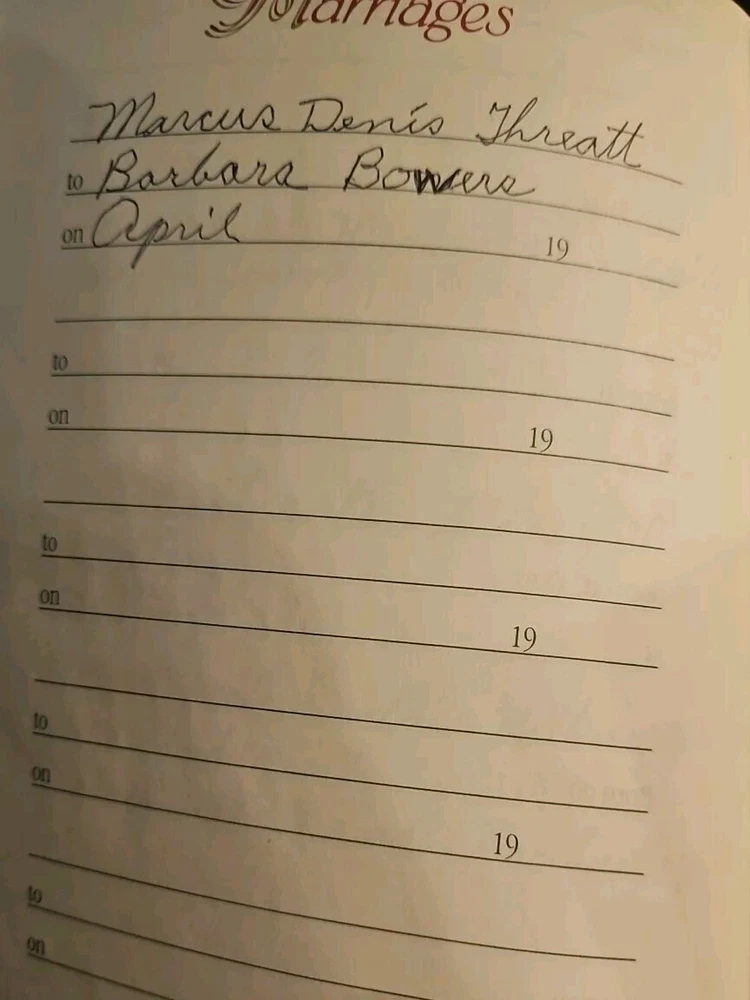 Marriages
Marcus Denis Threatt
to Barbara Bowers
on April 19
to
on 19
to
on 19
to
on 19
to
on